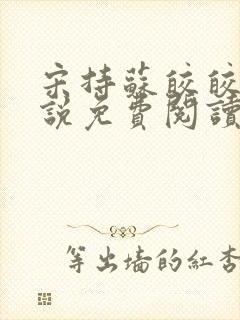 宋持蘇皎皎
說免費閱讀
等出墙的紅杏